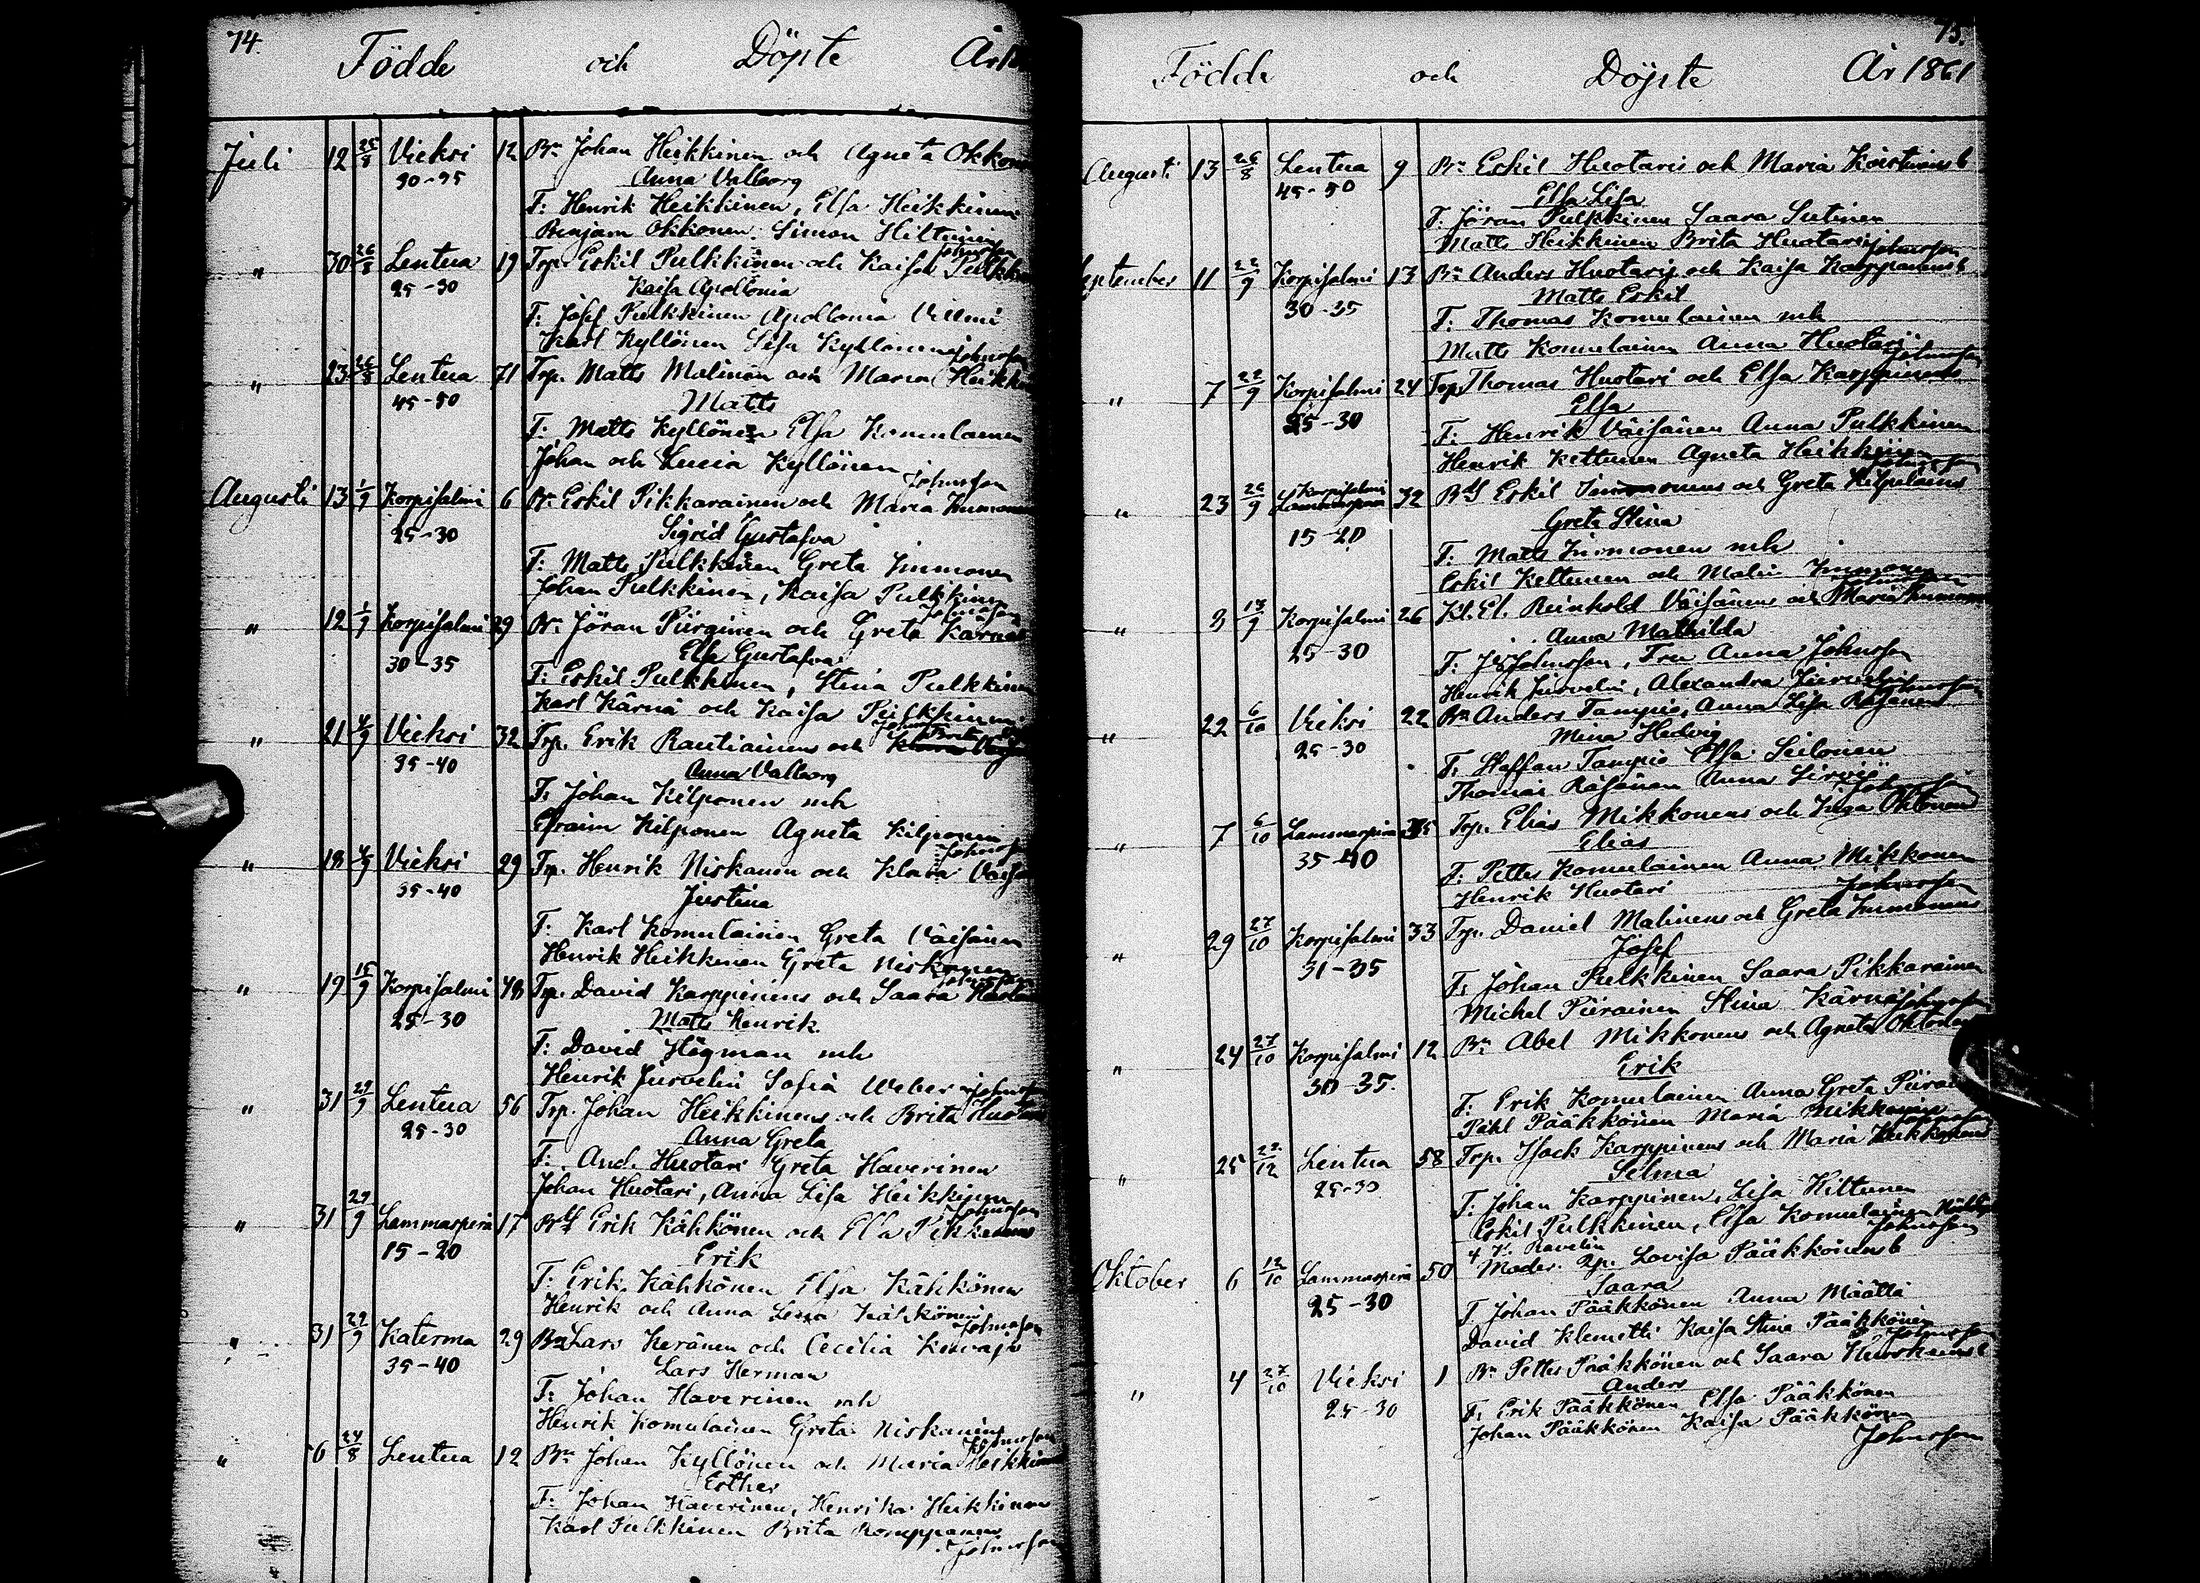 74.
Födde och Döpte År
Juli 12 25/8 Vieksi 12 Bn Johan Heikkinen och Agneta Okkonen
90-95 Anna Valborg
F: Henrik Heikkinen, Elsa Heikkinen
Benjam Okkonen: Simon Hiltunen
Johnsson
" 30 26/8 Lentua 19 Trp. Eskil Pulkkinen och Kaisa Pulkki
25-30 Kaisa Apollonia
F: Josef Pulkkinen Apollonia Villmi
Karl Kyllönen Lisa Kyllönen Johnsson
" 23 26/8 Lentua 71 Trp. Matts Malinen och Maria Heikki
45-50 Matts
F: Matts Kyllönen Elsa Komulainen
Johan och Lucia Kyllönen
Johnsson
Augusti 13 1/9 Korpisalmi 6 Bn Eskil Pikkarainen och Maria Immonen
25-30 Sigrid Gustafva
F: Matts Pulkkinen Greta Immonen
Johan Pulkkinen, Kaisa Pulkkinen
Johnsson
" 12 1/9 Korpisalmi 29 Bn Jöran Piirainen och Greta Kärnä
30-35 Elsa Gustafva
F: Eskil Pulkkinen, Stina Pulkkinen
Karl Kärnä och Kaisa Pulkkinen
Johnsson
" 21 4/9 Vieksi 32 Trp. Erik Rautiainens och Brita
35-40 Anna Valborg
F: Johan Kilponen mh
Efraim Kilponen Agneta Kilponen
Johnsson
" 18 4/9 Vieksi 29 Trp. Henrik Niskanen och Klara Väisä
35-40 Justina
F: Karl Komulainen Greta Väisänen
Henrik Heikkinen Greta Niskanen
Johnsson
" 19 15/9 Korpisalmi 48 Trp. David Karppinens och Saara
25-30 Matts Henrik
F: David Högman mh
Henrik Jurvelin Sofia Weber Johnsson
" 31 29/9 Lentua 56 Trp. Johan Heikkinens och Brita Huotari
25-30 Anna Greta
F: And. Huotari Greta Haverinen
Johan Huotari, Anna Lisa Heikkinen
Johnsson
" 31 29/9 Lammasperä 17 Erik Kähkönen och Elsa
15-20 Erik
F: Erik Kähkönen Elsa Kähkönen
Henrik och Anna Lisa Kähkönen
Johnsson
" 31 29/9 Katerma 29 Bn Lars Keränen och Cecilia
35-40 Lars Herman
F: Johan Haverinen mh
Henrik Komulainen Greta Niskanen
Johnsson
" 6 24/8 Lentua 12 Bn Johan Kyllönen och Maria Heikkinen
Esther
F: Johan Haverinen, Henrika Heikkinen
Karl Pulkkinen Brita Komppanen
Johnsson
75.
Födde och Döpte År 1861
Augusti 13 26/8 Lentua 9 Bn Eskil Huotari och Maria
45-50 Elsa Lisa
F: Jöran Pulkkinen Saara Sutinen
Matts Heikkinen Brita Huotari Johnsson
September 11 22/9 Korpisalmi 13 Bn Anders Huotari och Kaisa
30-35 Matts Eskil
F: Thomas Komulainen mh
Matts Komulainen Anna Huotari
Johnsson
" 7 22/9 Korpisalmi 24 Trp Thomas Huotari och Elsa Karppinens
25-30 Elsa
F: Henrik Väisänen Anna Pulkkinen
Henrik Kettunen Agneta Heikkinen
Johnsson
" 23 29/9 Korpisalmi 32 Eskil Immonens och Greta Kilpeläinens
15-20 Greta Stina
F: Matts Immonen mh
Eskil Kettunen och Malin Immonen
Johnsson
" 3 17/9 Korpisalmi 26 Kl. El. Reinhold Väisänens och Maria Immonen
25-30 Anna Mathilda
F: Johnsson, Fru Anna Johnsson
Henrik Jurvelin, Alexandra Jurvelin
Johnsson
" 22 6/10 Vieksi 22 Bn Anders Tampio, Anna Lisa Räisänens
25-30 Mina Hedvig
F: Staffan Tampio Elsa Seilonen
Thomas Räisänen Anna Sirviö
Johnsson
" 7 6/10 Lammasperä 35 Trp. Elias Mikkonens och Inga Okkonens
35-40 Elias
F: Petter Komulainen Anna Mikkonen
Henrik Huotari Johnsson
" 29 27/10 Korpisalmi 33 Trp. Daniel Malinens och Greta Immonens
31-35 Josef
F: Johan Pulkkinen Saara Pikkarainen
Michel Piirainen Stina Kärnä Johnsson
" 24 27/10 Korpisalmi 12 Bn Abel Mikkonens och Agneta Okkonen
30-35. Erik
F: Erik Komulainen Anna Greta Piirai
Påhl Pääkkönen Maria Mikkonen
Johnsson
" 25 22/12 Lentua 58 Trp. Isack Karppinens och Maria Heikkinens
25-30 Selma
F: Johan Karppinen, Lisa Hiltunen
Eskil Pulkkinen, Elsa Komulainen
Johnsson
Oktober 6 12/10 Lammasperä 50 Moder. Lovisa Pääkkönens
25-30 Saara
F Johan Pääkkönen Anna Määttä
David Klemetti Kaisa Stina Pääkkönen
Johnsson
" 4 27/10 Vieksi 1 Bn Petter Pääkkönen och Saara
25-30 Anders
F: Erik Pääkkönen Elsa Pääkkönen
Johan Pääkkönen Kaisa Pääkkönen
Johnsson